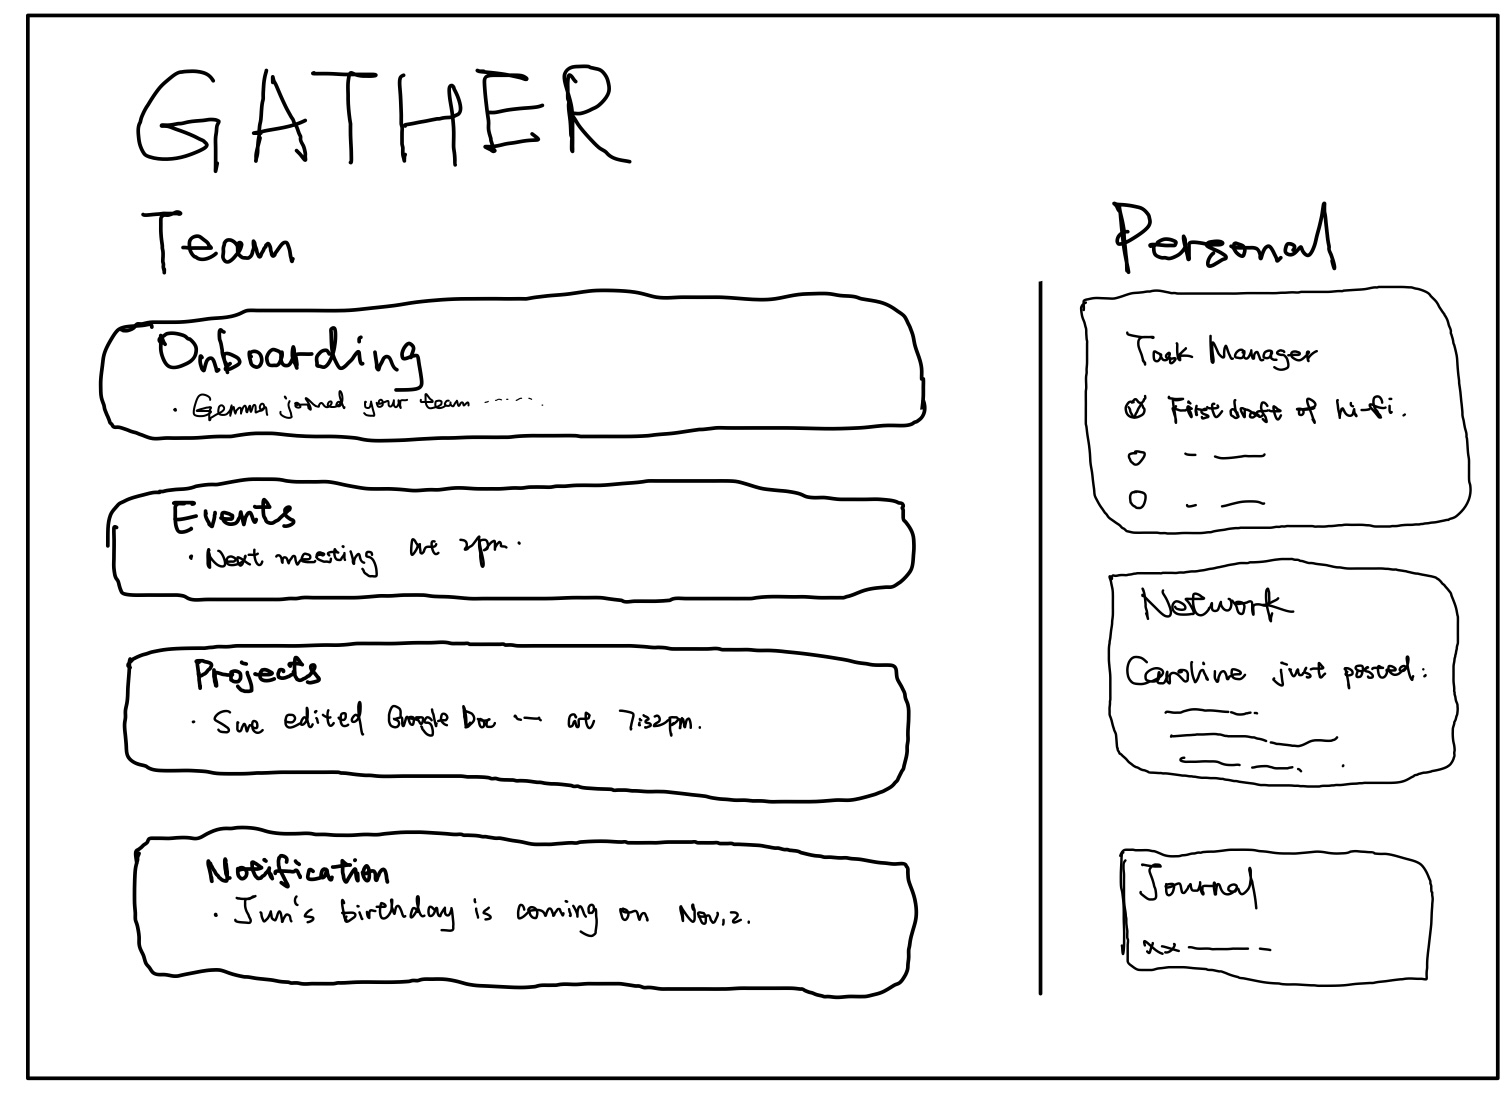 GATHER
Team
Onboarding
· Gemma joined your team -----.
Events
· Next meeting at 2pm.
Projects
· Sue edited Google Doc --- at 7:32pm.
Notification
· Jun's birthday is coming on Nov,2.
Personal
Task Manager
First draft of hi-fi.
Network
Caroline just posted:
Journal
xx